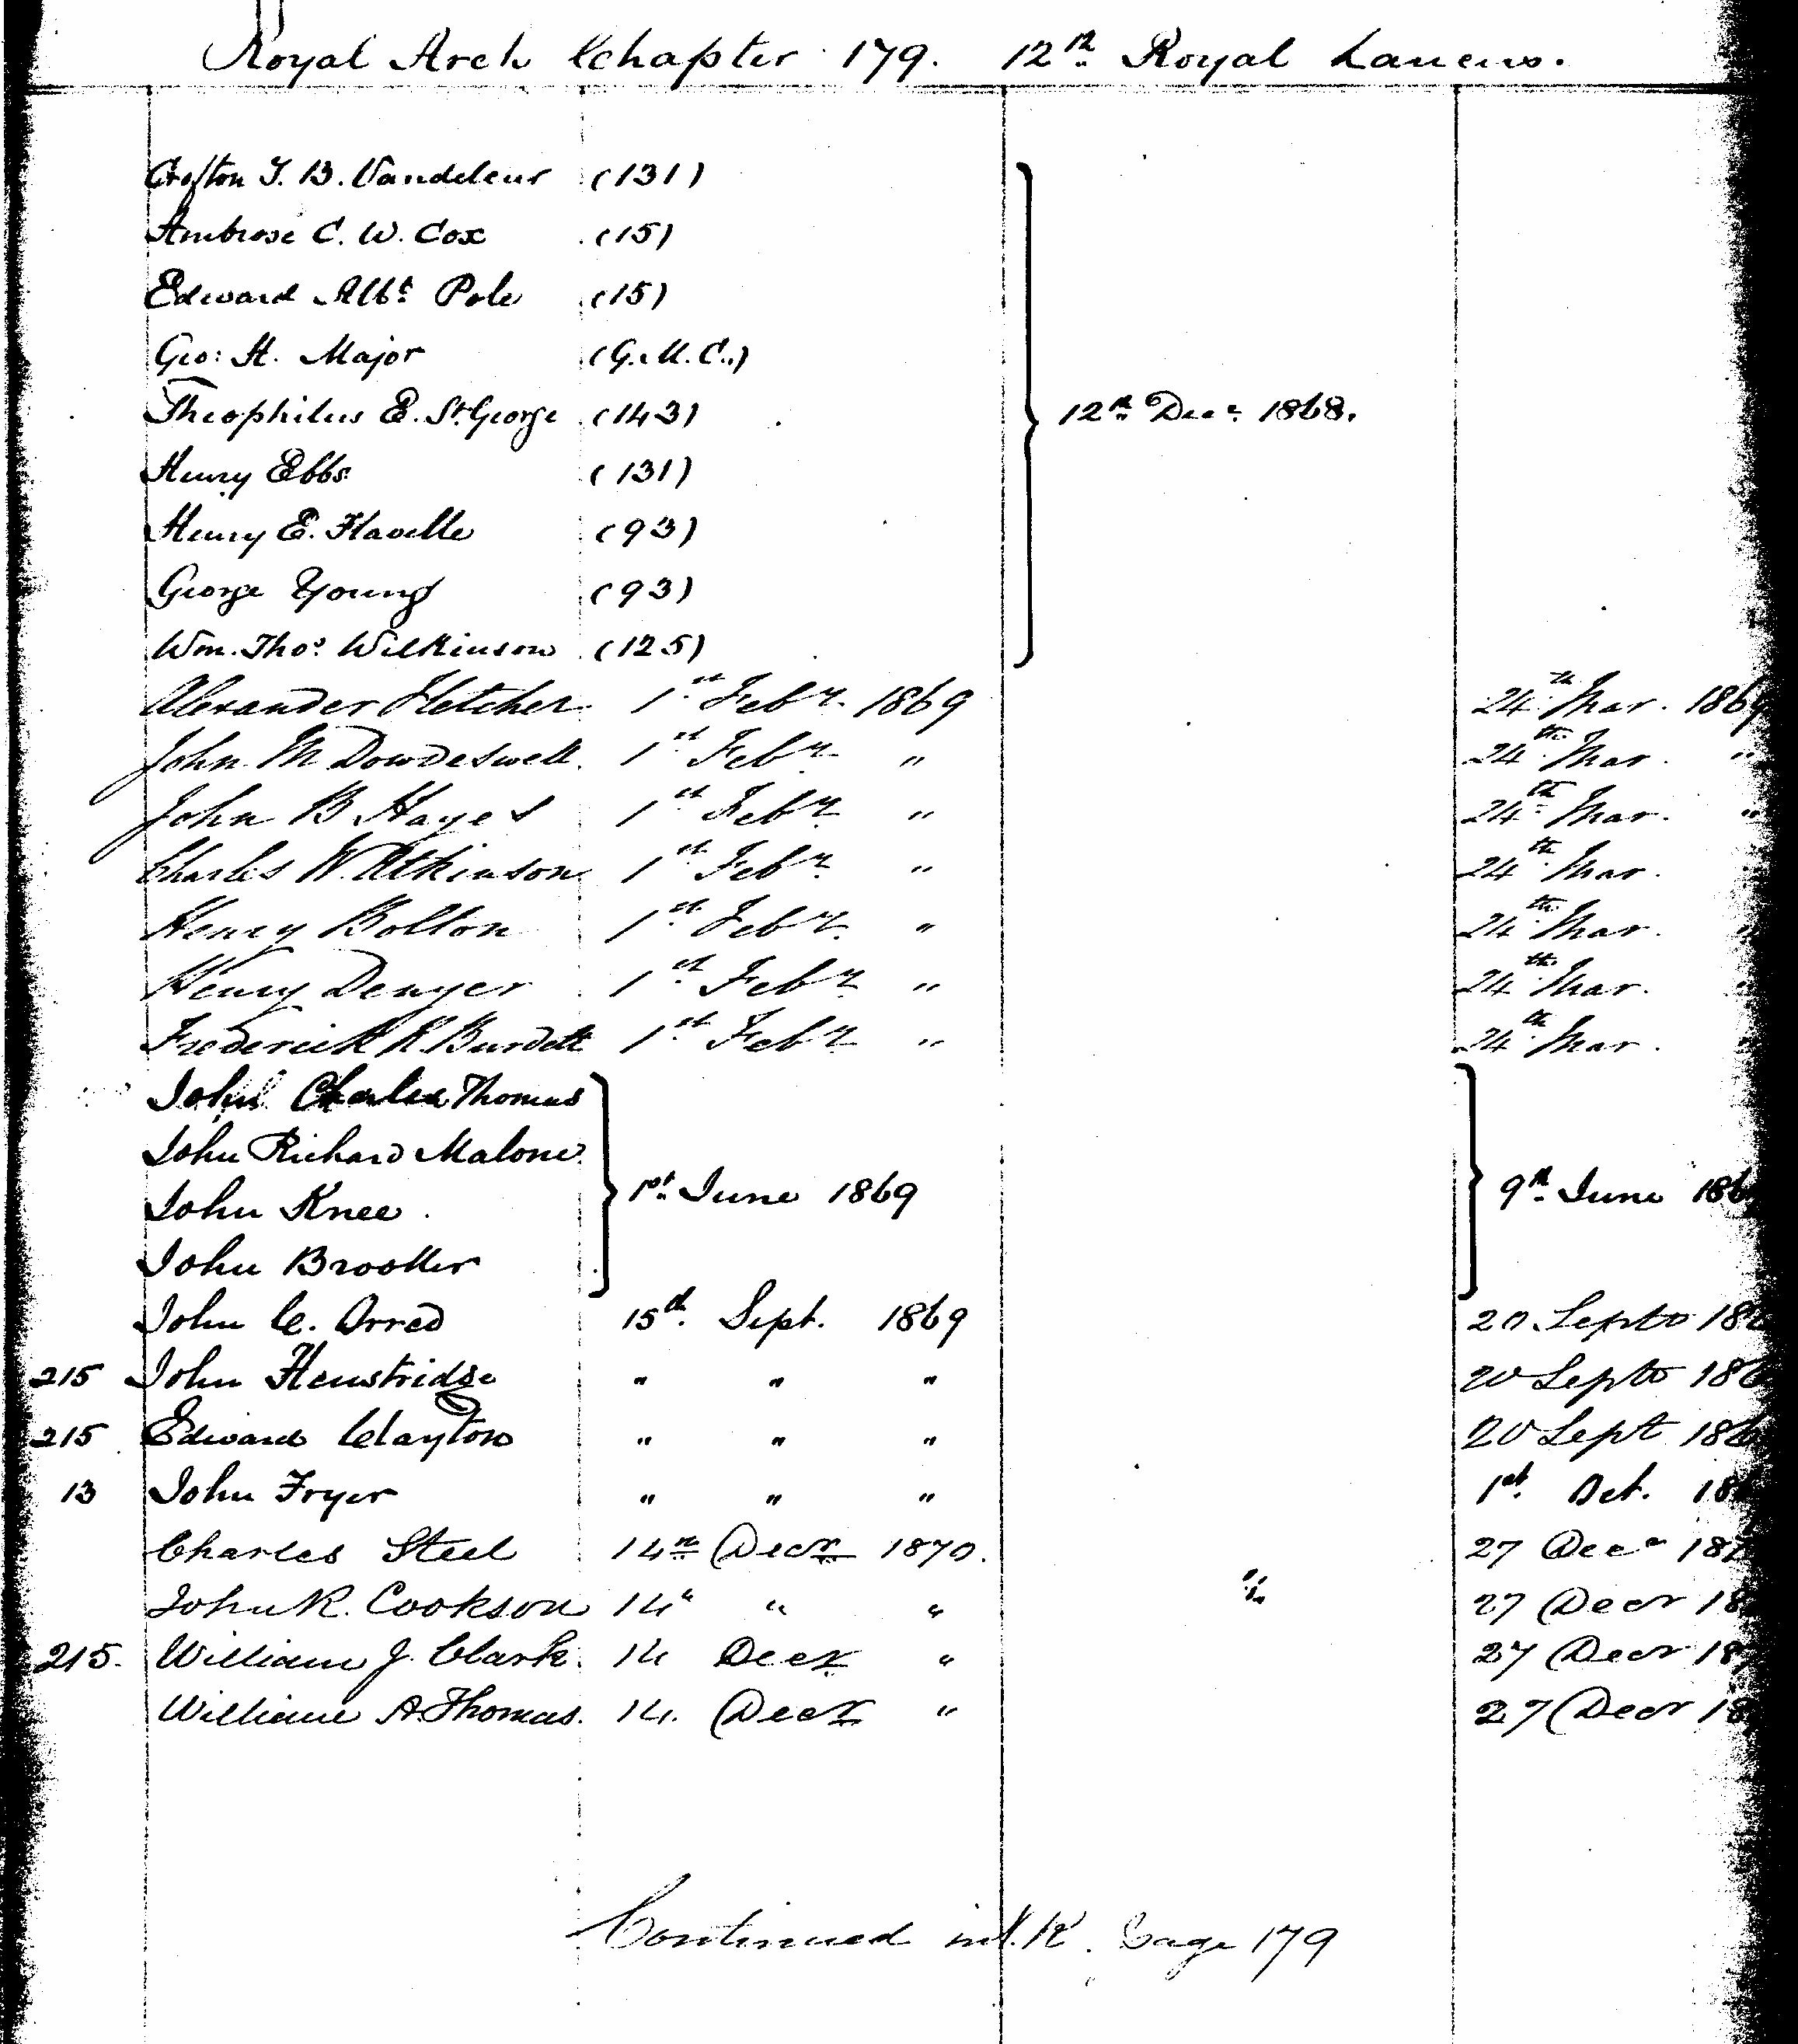 Royal Arch Chapter 179. 12th Royal Lancers.
Crofton T. B. Vandeleur (131)
Ambrose C. W. Cox (15)
Edward Albt Pole (15)
Geo: H. Major (G.M.C.)
Theophilus E. St. George (143) 12th Decr 1868.
Henry Ebbs (131)
Henry E. Flavelle (93)
George Young (93)
Wm. Thos. Wilkinson (125)
Alexander Fletcher 1st Febr. 1869 24th Mar. 1869
John M Dowdeswell. 1st Febr. " 24th Mar. "
John B Hayes 1st Febr. " 24th Mar. "
Charles W. Atkinson 1st Febr. " 24th Mar.
Henry Bolton 1st Febr. " 24th Mar. "
Henry Denyer 1st Febr. " 24th Mar.
Frederick R Burdett 1st Febr. " 24th Mar.
John Charles Thomas
John Richard Malone
John Knee 1st June 1869 9th June 186
John Brooker
John C. Orred 15th. Sept. 1869 20 Septr 18
215 John Henstridge " " " 20 Septr 186
215 Edward Clayton " " " 20 Sept 186
13 John Fryer " " " 1st. Oct. 18
Charles Steel 14th Decr 1870. 27 Decr 187
John R. Cookson 14 " " " 27 Decr 18
215. William J. Clark. 14 Decr " 27 Decr 18
William A. Thomas. 14. Decr " 27 Decr 18
Continued in page 179